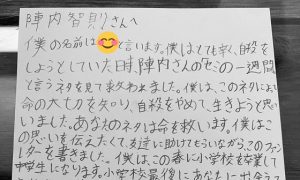 陣内智則さんへ
僕の名前は と言います。僕はとても辛く、自殺を
しようとしていた時、陣内さんのセミの一週間
と言うネタを見て救われました。僕は、このネタにより
命の大切を知り、自殺をやめて、生きようと思い
いました。あなたのネタは命を救います。僕はこ
の思いを伝えたくて、友達に助けてもらいながらこのファン
レターを書きました。僕はこの春に小学校を卒業して
中学生になります。小学校最後にあなたに出会うて